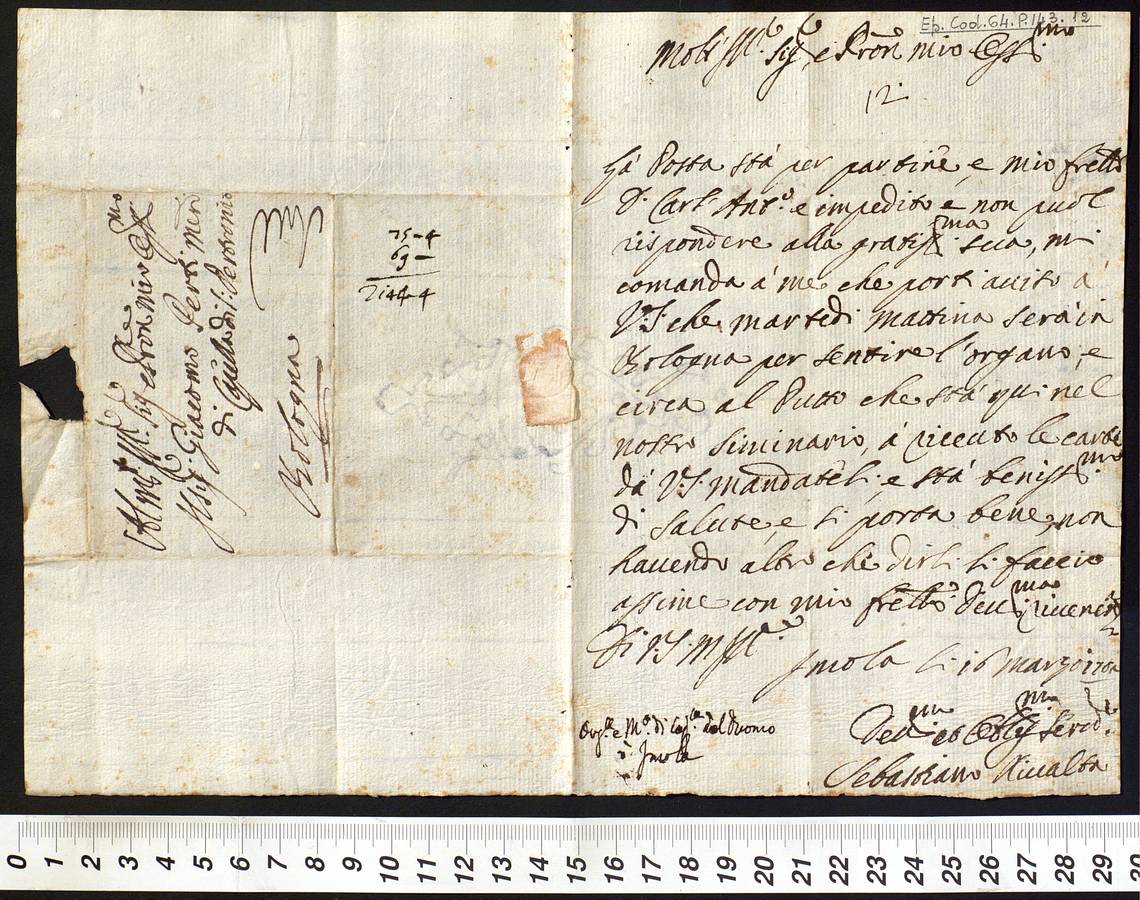 Ep. Cod. 64. P. 143. 12
Molt' Ill.e Sig.e e Pron mio Oss.mo
12
La Posta stà per partire, e mio frello
D. Carl' Ant.o e impedito e non puol
rispondere alla gratiss.ma sua, mi
comanda à me che porti aviso à
V.S. che martedi mattina serà in
Bologna per sentire l'organo, e
circa al Putto che stà qui nel
nostro siminario, à riceuto le carte
dà V.S. mandateli, e stà beniss.mo
di salute, e si porta bene, non
hauendo altro che dirli li faccio
assime con mio frello deu.ma riueren.
Di V.S. M. Ill.e
Imola li 16 marzo
Deu.mo et Obl.mo Serv.e
Sebastiano Riualta
Org.ta e M.o di Cap.la del Duomo
Imola
Al M.to Ill.re Sig.e e Pron mio Oss.mo
Il Sig.e Giacomo Perti
di Capella di S. Petronio
Bologna
75-4
69-
2144-4
0 1 2 3 4 5 6 7 8 9 10 11 12 13 14 15 16 17 18 19 20 21 22 23 24 25 26 27 28 29 30